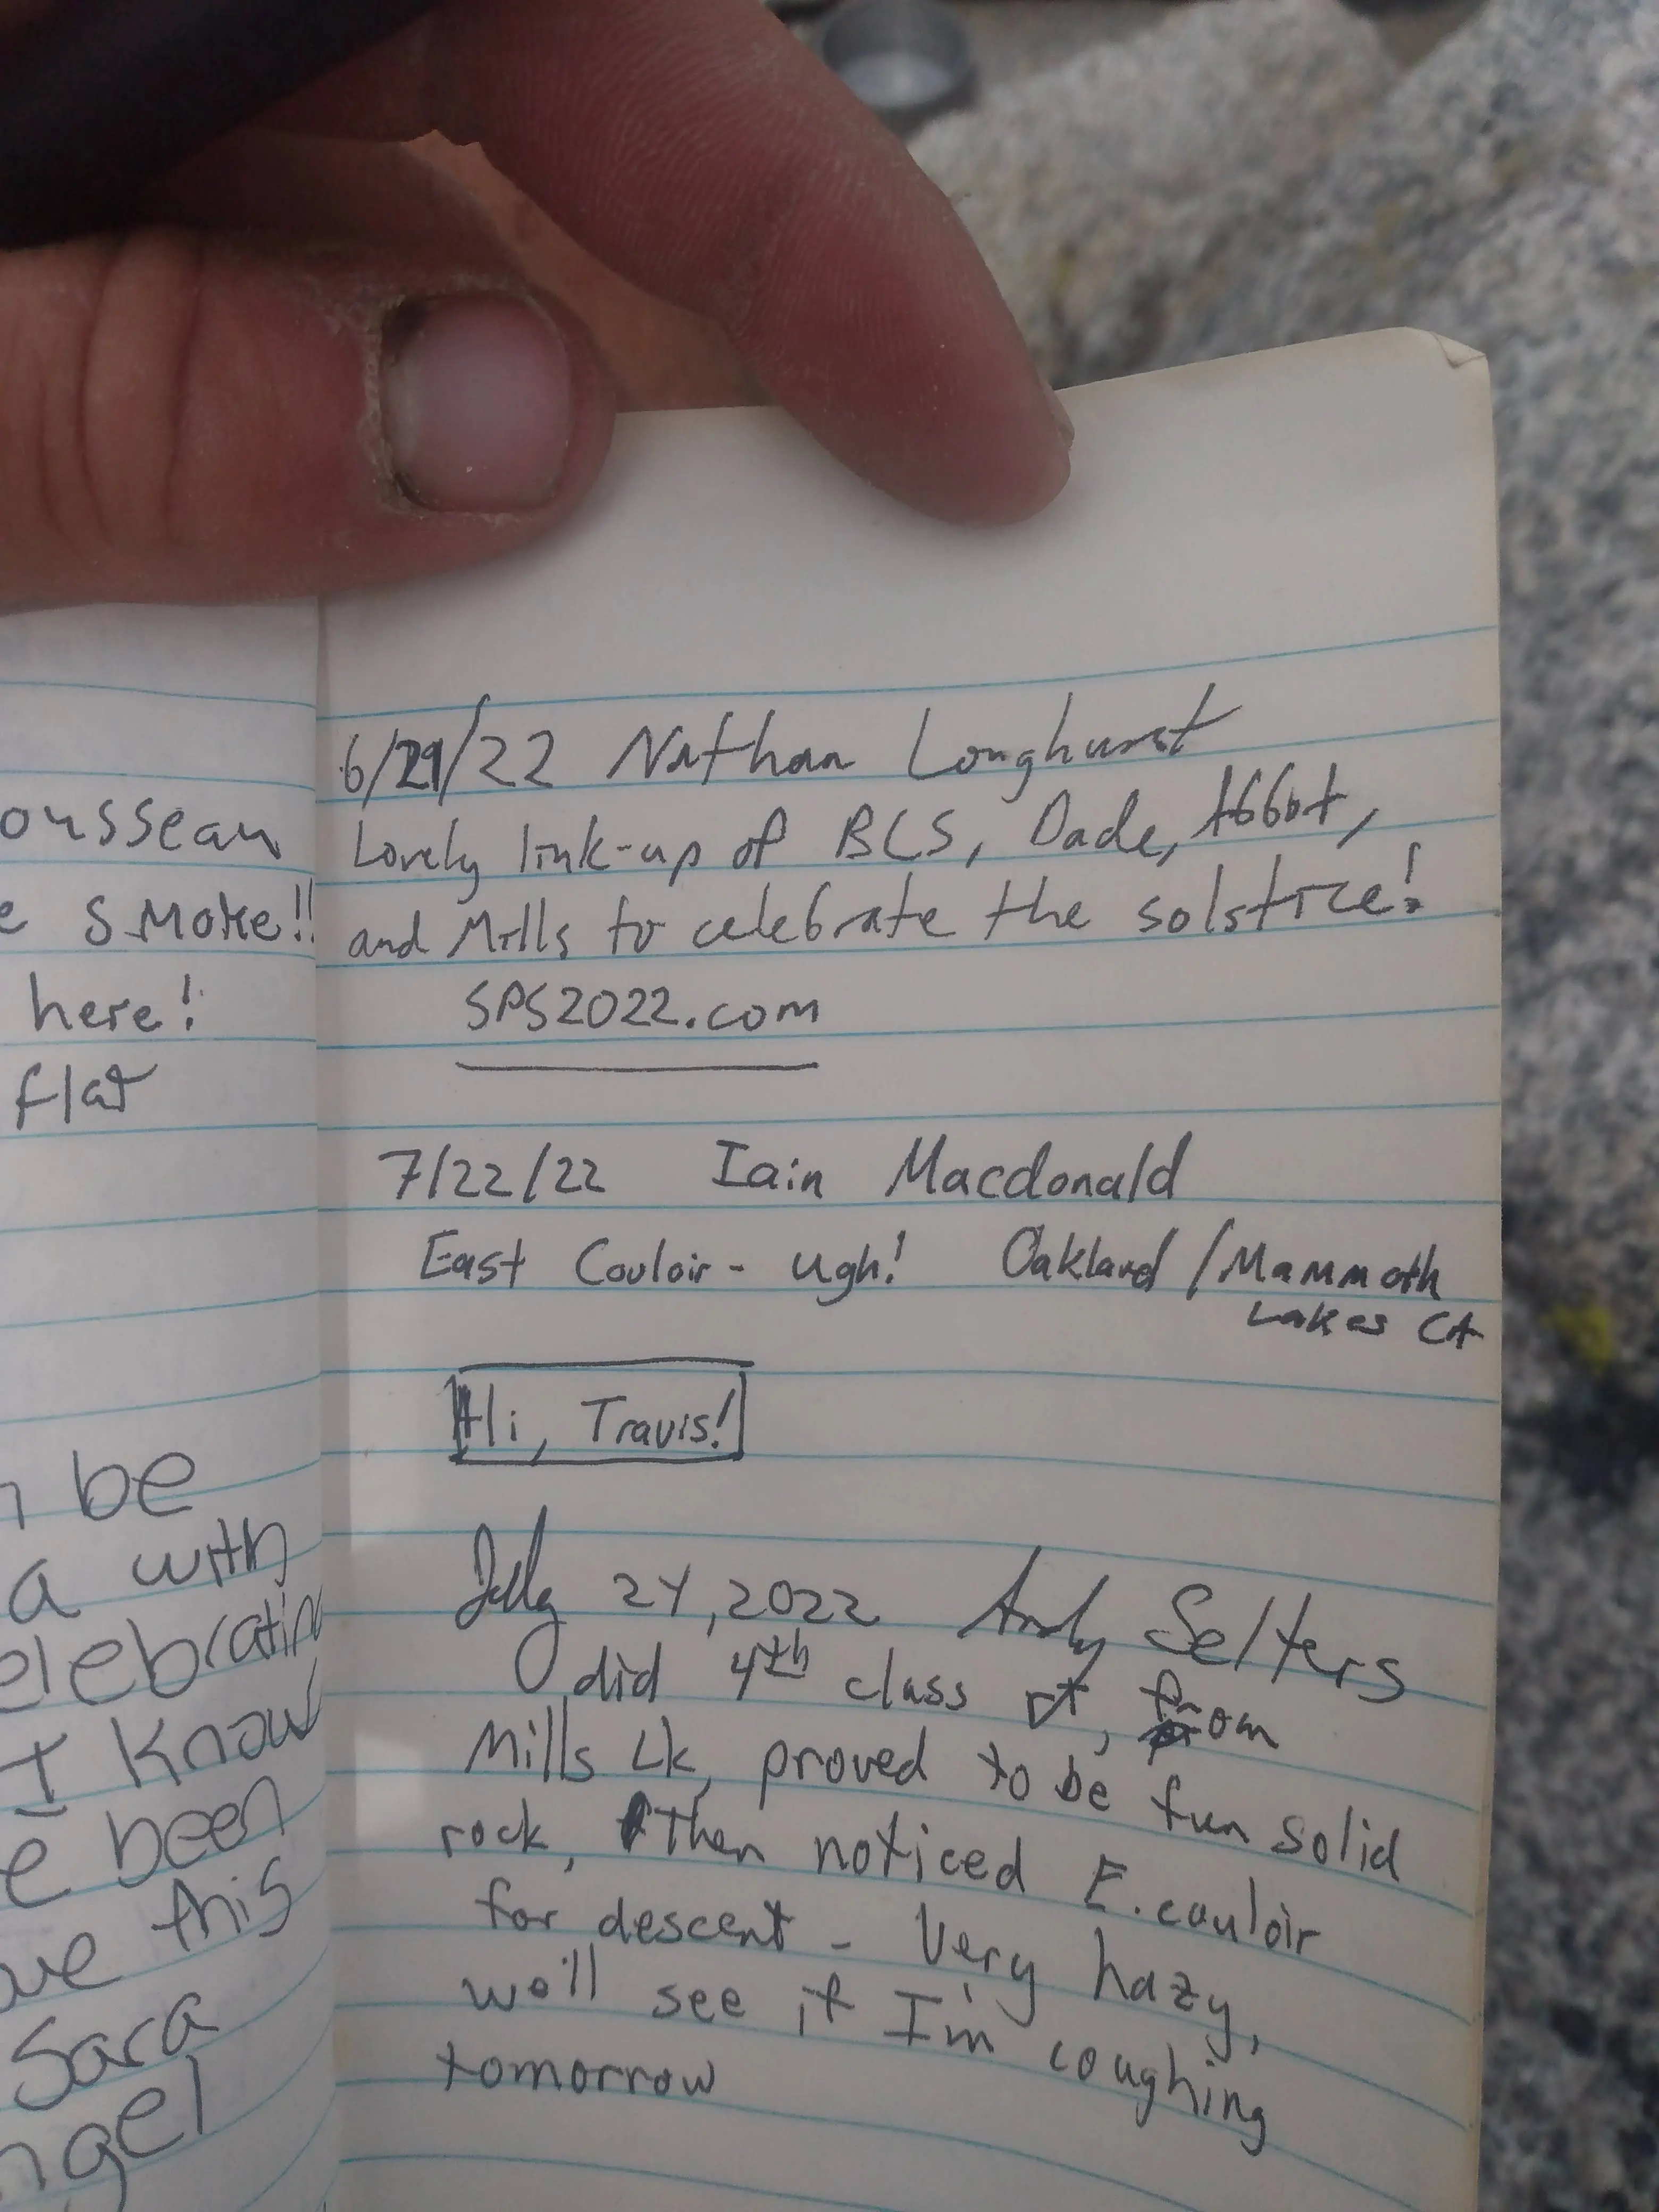 ousseau
e smoke!!
here!
flat
be
a with
elebratin
I Know
e been
ve this
Sara
ngel
6/21/22 Nathan Longhurst
Lovely link-up of BCS, Dade, Abbot,
and Mills to celebrate the solstice!
SPS2022.com
7/22/22 Iain Macdonald
East Couloir - ugh! Oakland / Mammoth
Lakes CA
Hi, Travis!
July 24, 2022 Andy Selters
did 4th class rt, from
Mills Lk, proved to be fun solid
rock, then noticed E. couloir
for descent - Very hazy,
we'll see if I'm coughing
tomorrow